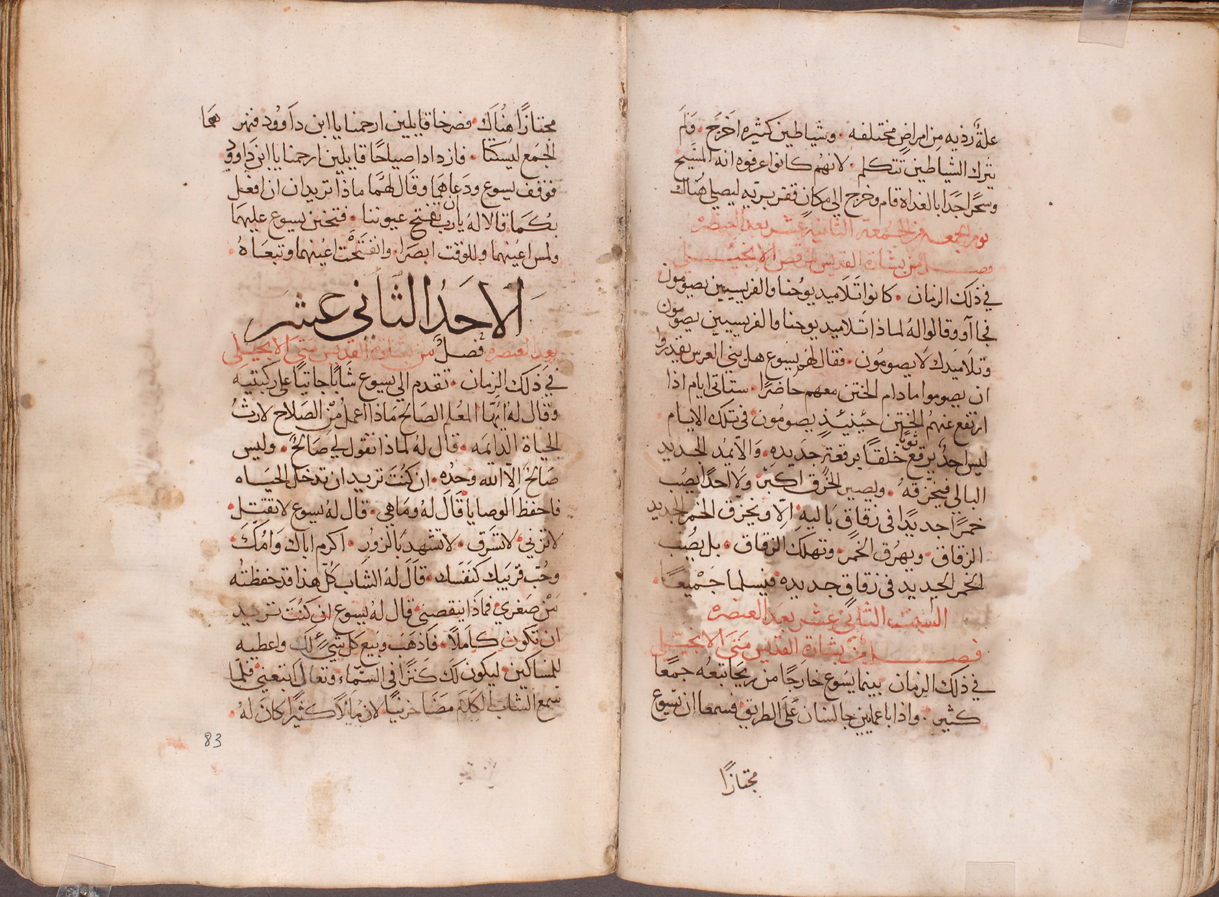 علة رذيه من امراض مختلفه • وشياطين كثيره اخرج • ولم
يترك الشياطين تتكلم • لانهم كانوا عرفوه انه المسيح
وسحرًا جدا بالغداة قام وخرج الى مكان قفر بريه ليصلي هناك
يوم الجمعه من الجمعة الثانية عشر بعد العنصره
فصل من بشارة القديس مرقس الانجيلي
في ذلك الزمان • كانوا تلاميد يوحنا والفريسيين يصومون
فجاآو وقالوا له لماذا تلاميد يوحنا والفريسيين يصومون
وتلاميدك لا يصومون • فقال لهم يسوع هل بني العرس يقدروا
ان يصوموا مادام الختن معهم حاضرًا • ستاتي ايام اذا
ارتفع عنهم الختن حينيذٍ يصومون في تلك الايام •
ليس احدٌ يرقع ثوبًا خلقاً برقعة جديده • والا يمد الجديد
البالي فيخرقه • ويصير الخرق اكبر • ولا احدًا يصب
خمرًا جديدًا في زقاق باليه • الا ويخرق الخمر الجديد
الزقاق • ويهرق الخمر • وتهلك الزقاق • بل يصب
الخمر الجديد في زقاق جديده فيسلما جميعًا •
السبت الثاني عشر بعد العنصره
فصل من بشارة القديس متى الانجيلي
في ذلك الزمان • بينما يسوع خارجًا من ريحا تبعه جمعًا
كثير • واذا باعميين جالسان على الطريق فسمعا ان يسوع
مجتازًا
مجتازًا هناك • فصرخا قايلين ارحمنا يا ابن داوود فنهرهما
الجمع ليسكتا • فازدادا صياحًا قايلين ارحمنا يا ابن داوود
فوقف يسوع ودعاهما وقال لهما ماذا تريدان ان افعل
بكما قالا له يا رب ان تفتح عيوننا • فتحنن يسوع عليهما
ولمس اعينهما وللوقت ابصرا • وانفتحت اعينهما وتبعاه •
الاحد الثاني عشر
بعد العنصره فصل من بشارة القديس متى الانجيلي
في ذلك الزمان • تقدم الى يسوع شابًا جاثيًا على ركبتيه
وقال له ايها المعلم الصالح ماذا اعمل من الصلاح لارث
الحياة الدايمه • قال له لماذا تقول لي صالح • وليس
صالحٌ الا الله وحده • ان كنت تريد ان تدخل الحياه
فاحفظ الوصايا قال له وما هي • قال له يسوع لا تقتل •
لا تزني • لا تسرق • لا تشهد بالزور • اكرم اباك وامك •
وحب قريبك كنفسك • قال له الشاب كل هذا قد حفظته
من صغري • فماذا ينقصني قال له يسوع ان كنت تريد
ان تكون كاملاً • فاذهب وبيع كل شيء لك واعطيه
للمساكين • ليكون لك كنزًا في السماء • وتعال اتبعني فلما
سمع الشاب الكلام مضا حزينًا لان مالاً كثيرًا كان له •
83